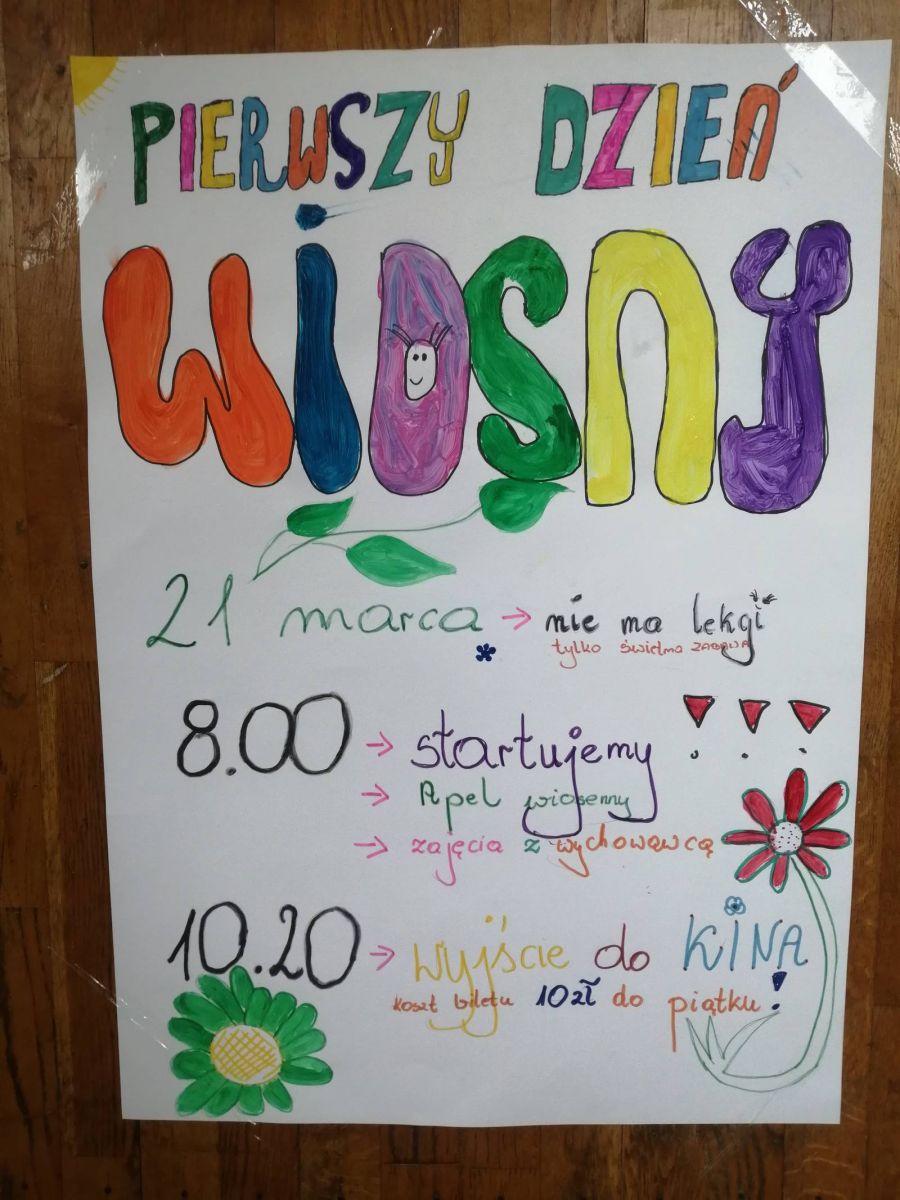 PIERWSZY DZIEŃ
WiOSNy
21 marca → nie ma lekgi
tylko świetna ZABAWA
8.00 → startujemy !!!
→ Apel wiosenny
→ zajęcia z wychowawcą
10.20 → wyjście do KINA
koszt biletu 10zł do piątku!